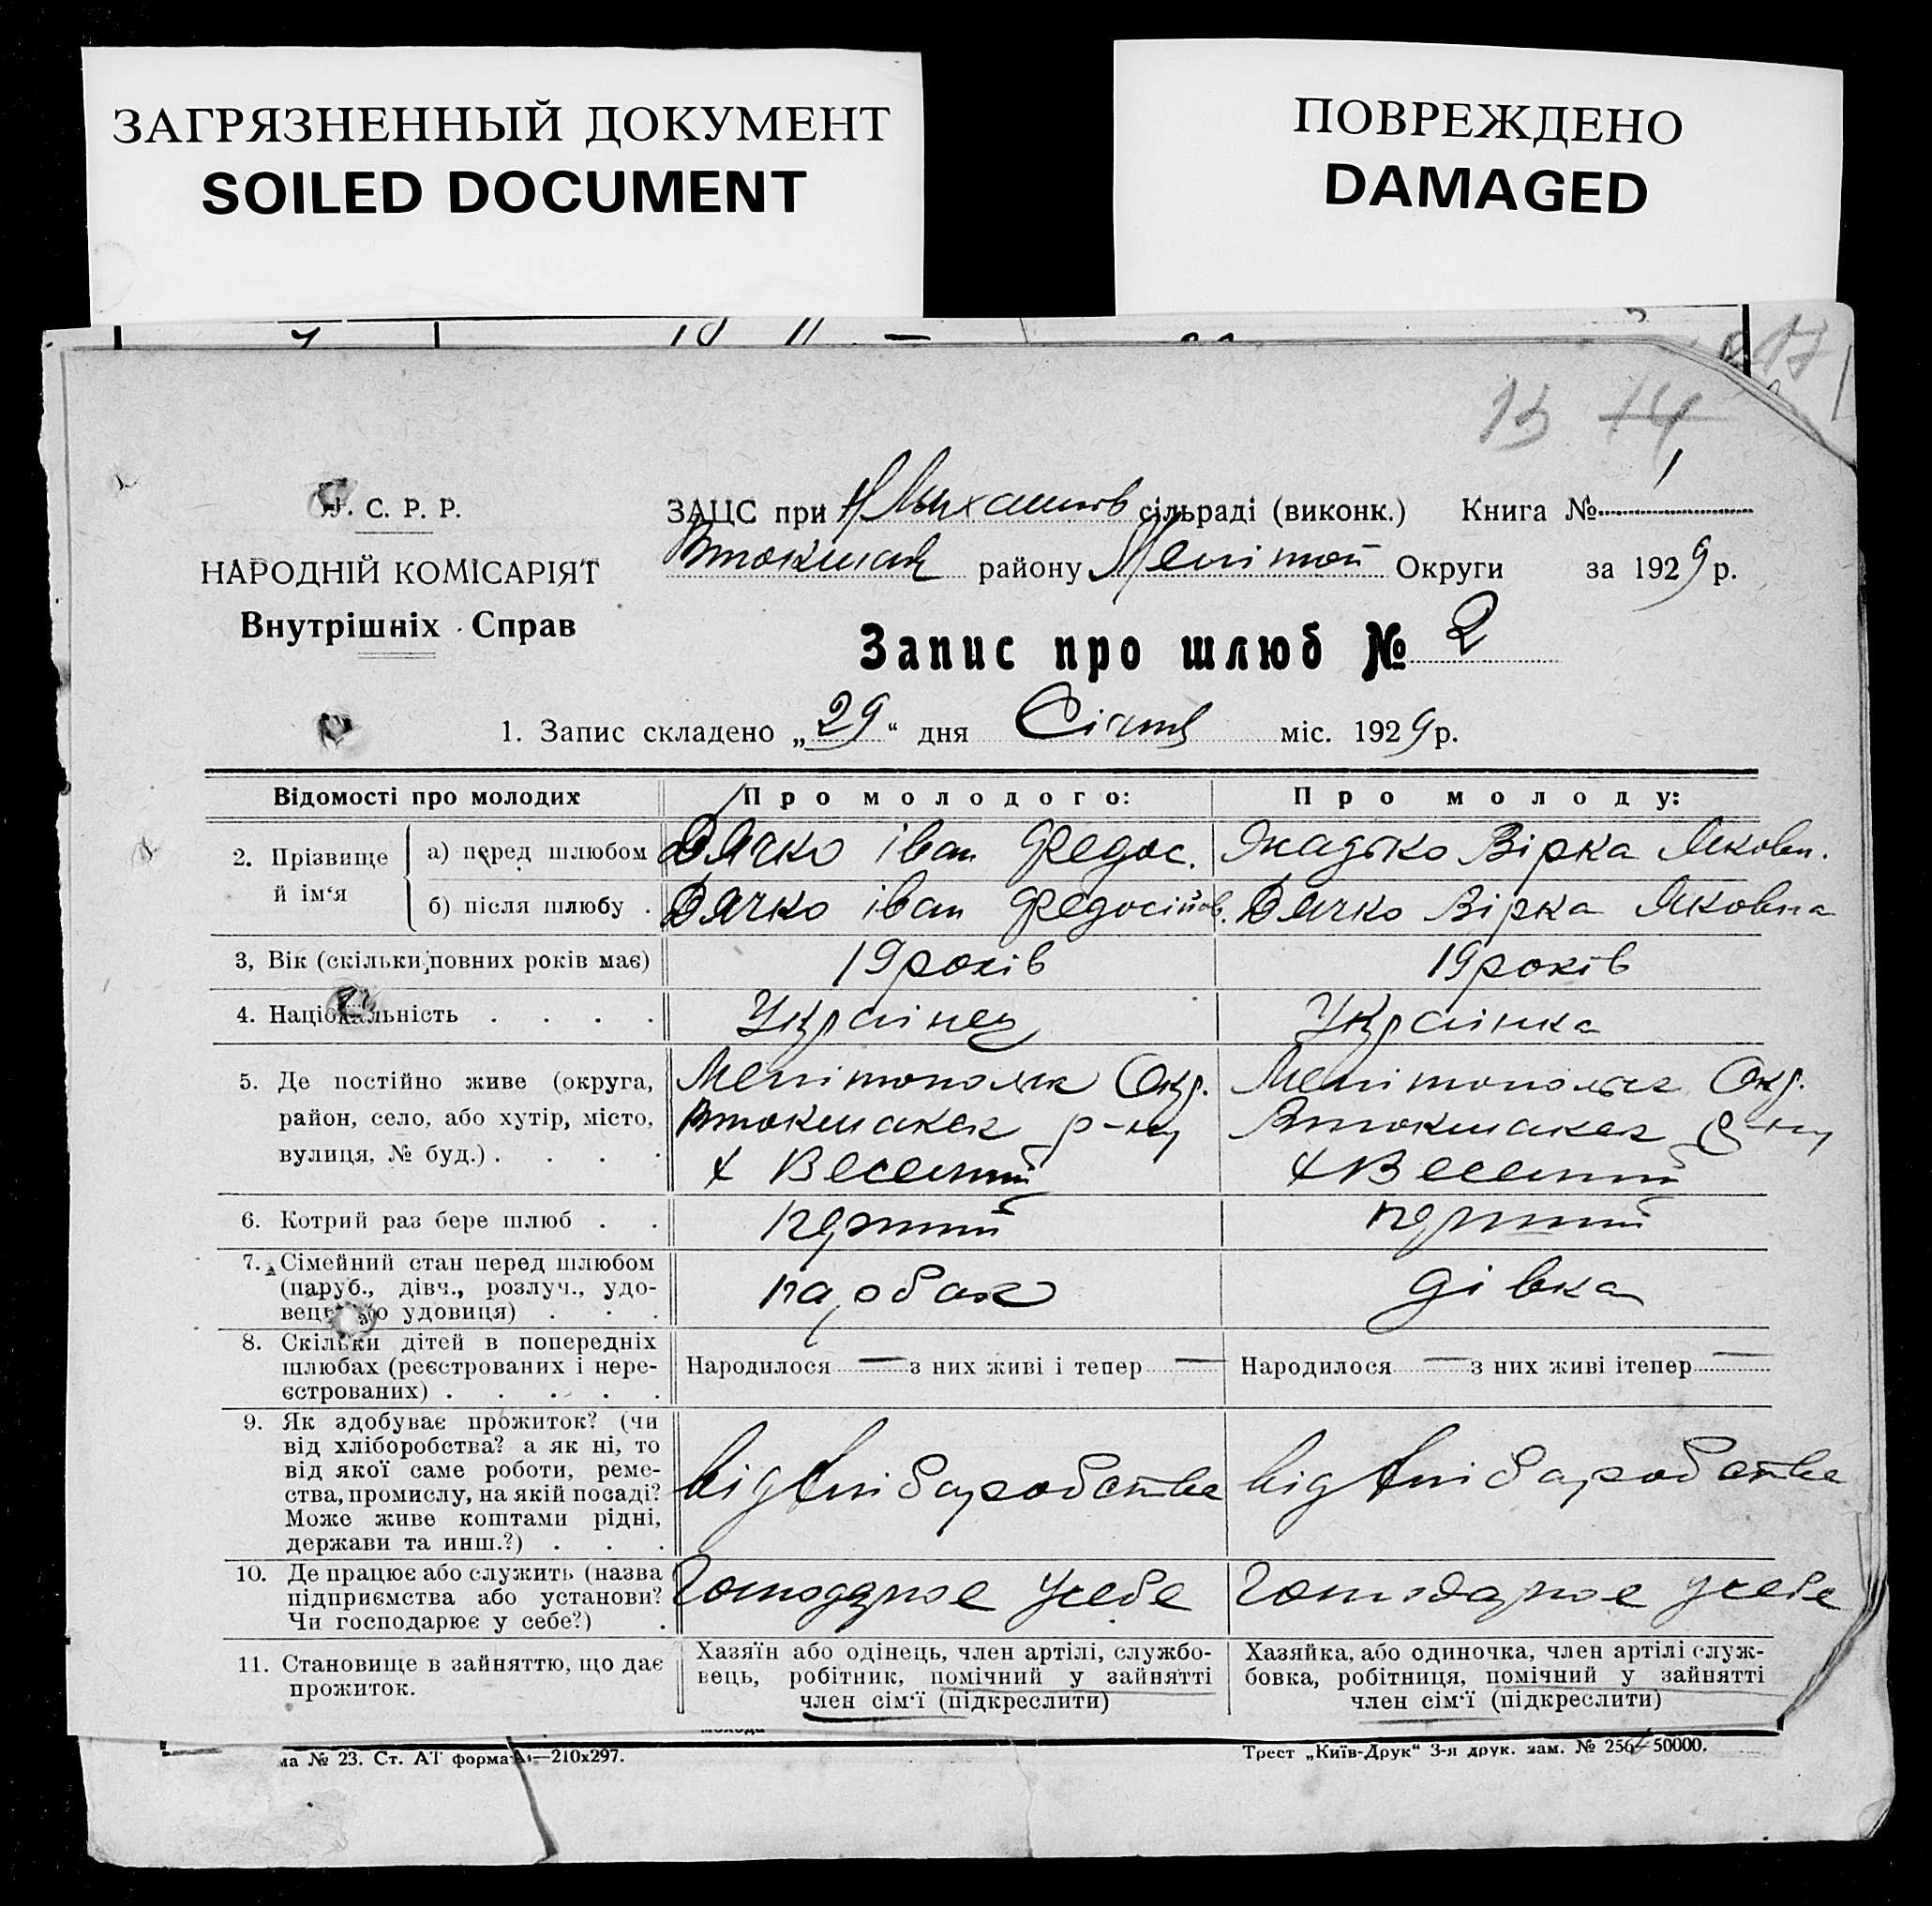 ЗАГРЯЗНЕННЫЙ ДОКУМЕНТ
SOILED DOCUMENT
ПОВРЕЖДЕНО
DAMAGED
17
15 14
С. Р. Р.
НАРОДНІЙ КОМІСАРІЯТ
Внутрішніх Справ
ЗАЦС при сільраді (виконк.) Книга № 1
Втокмац району Мелітоп Округи за 1929 р.
Запис про шлюб № 2
1. Запис складено „29“ дня Січня міс. 1929 р.
Відомості про молодих
Про молодого:
Про молоду:
2. Прізвище й ім‘я
а) перед шлюбом
Дячко іван Федос.
Вірка Яковл.
б) після шлюбу .
Дячко іван Федосійов.
Дячко Вірка Яковна
3, Вік (скільки повних років має)
19 років
19 років
4. Національність . . . .
Українец
Українка
5. Де постійно живе (округа,
район, село, або хутір, місто,
вулиця, № буд.) . . . .
Мелітопольск Окр.
Втокмакск р-ну
х Веселий
Мелітопольск Окр.
Втокмакск р-ну
х Веселий
6. Котрий раз бере шлюб . .
перший
перший
7. Сімейний стан перед шлюбом
(паруб., дівч., розлуч., удо-
вець або удовиця) . . .
парубак
дівка
8. Скільки дітей в попередніх
шлюбах (реєстрованих і нере-
єстрованих) . . . . .
Народилося — з них живі і тепер —
Народилося — з них живі ітепер —
9. Як здобуває прожиток? (чи
від хліборобства? а як ні, то
від якої саме роботи, реме-
ства, промислу, на якій посаді?
Може живе коштами рідні,
держави та инш.?) . . .
від хлібаробства
від хлібаробства
10. Де працює або служить (назва
підприємства або установи?
Чи господарює у себе?) .
Господарює усебе
Господарює усебе
11. Становище в зайняттю, що дає
прожиток.
Хазяїн або одінець, член артілі, службо-
вець, робітник, помічний у зайнятті
член сім‘ї (підкреслити)
Хазяйка, або одиночка, член артілі служ-
бовка, робітниця, помічний у зайнятті
член сім‘ї (підкреслити)
№ 23. Ст. АТ формат —210х297.
Трест „Київ-Друк“ 3-я друк. зам. № 50000.